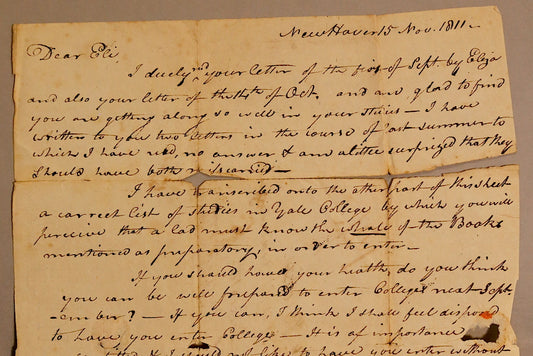 New Haven 15 Nov. 1811 -
Dear Eli,
I duely rd your letter of the first of Sept. by Eliza
and also your letter of the of Oct. and am glad to find
you are getting along so well in your studies - I have
written to you two letters in the course of last summer to
which I have recd, no answer & am alittle surprized that they
Should have both miscarried -
I have transcribed onto the other part of this sheet
a correct list of studies in Yale College by which you will
perceive that a Lad must know the whole of the Books
mentioned as preparatory, in order to enter -
If you should have your health, do you think
you can be well prepared to enter College next Sept-
-ember? - If you can, I think I shall feel disposed
to have you enter College - It is of importance
& I should not like to have you enter without